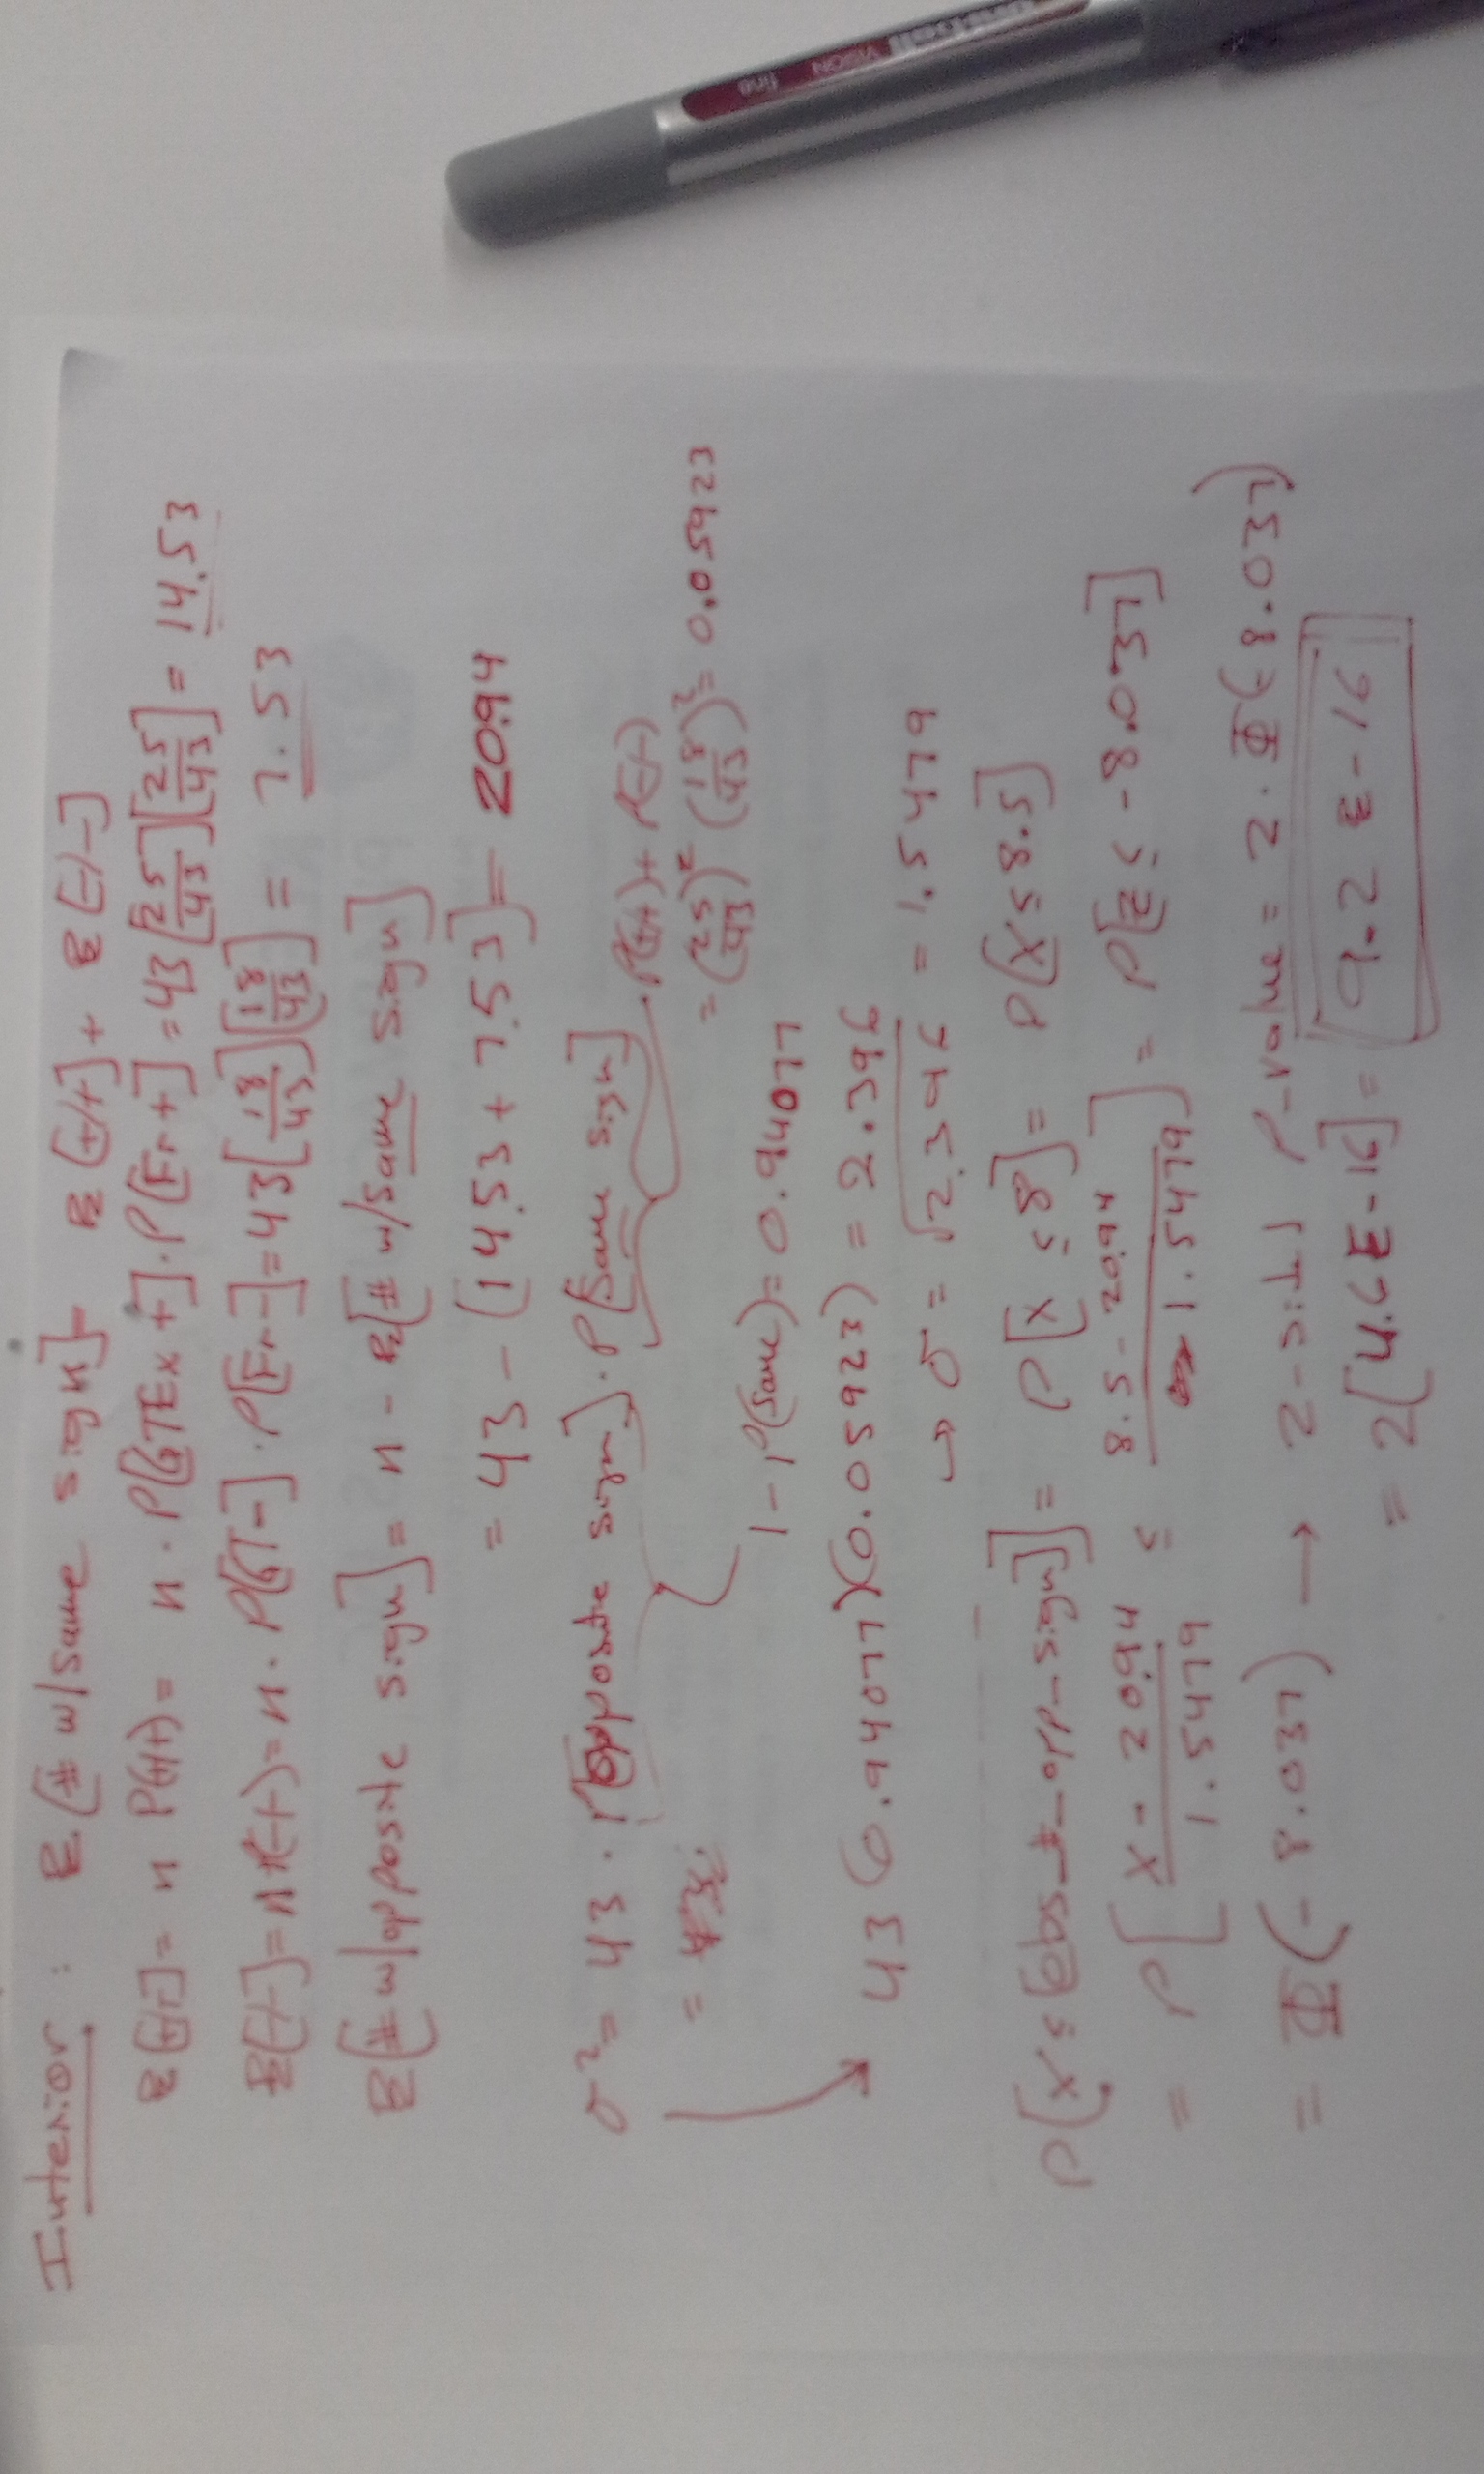 Interior : E[# w/same sign] = E[(+)] + E[(-)]
E[(+)] = n P(+) = n · P[GTEx +] · P[Fr +] = 43[25/43][25/43] = 14.53
E[(-)] = n P(-) = n · P[GT -] · P[Fr -] = 43[18/43][18/43] = 7.53
E[# w/opposite sign] = n - E[# w/same sign]
= 43 - [14.53 + 7.53] = 20.94
σ² = 43 · P[opposite sign] · P[same sign]
P(+) + P(-)
= (25/43)² (18/43)² = 0.05923
1 - P(same) = 0.94077
43 (0.94077)(0.05923) = 2.396
→ σ = √2.396 = 1.5479
P[X ≤ Obs-#-opp-sign] = P[X ≤ 8] = P[X ≤ 8.5]
= P[X - 20.94/1.5479 ≤ 8.5 - 20.94/1.5479] = P[Z ≤ -8.037]
= Φ(-8.037) → 2-sided p-value = 2 · Φ(-8.037)
= 2[4.6E-16] = 9.2E-16
VISION
fine